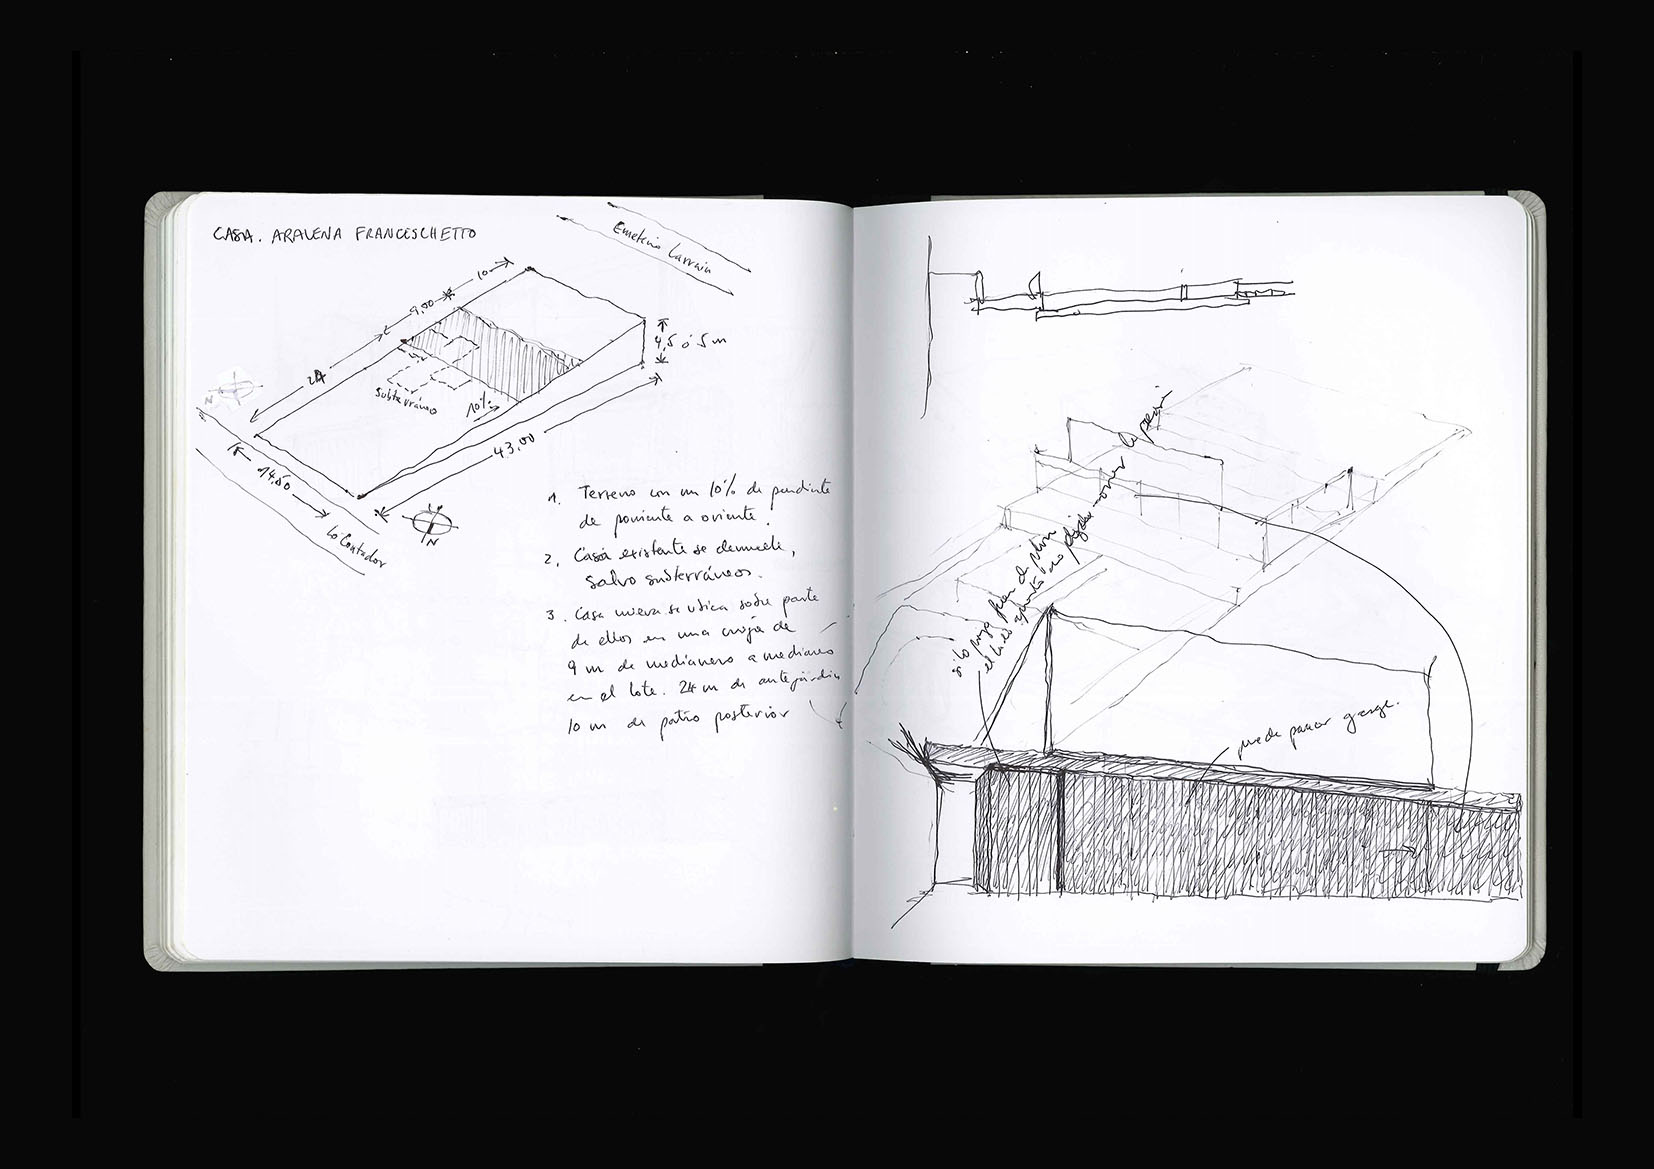 CASA. ARAVENA FRANCESCHETTO
Emeterio Larrain
10
9,00
24
4,5 ó 5 m
subterráneo
10%
43,00
14,50
N
N
Lo Contador
1. Terreno con un 10% de pendiente
de poniente a oriente.
2. Casa existente se demuele,
salvo subterráneos.
3. Casa nueva se ubica sobre parte
de ellos en una crujía de
9 m de medianero a medianero
en el lote. 24 m de antejardín
10 m de patio posterior
puede pasar garage.